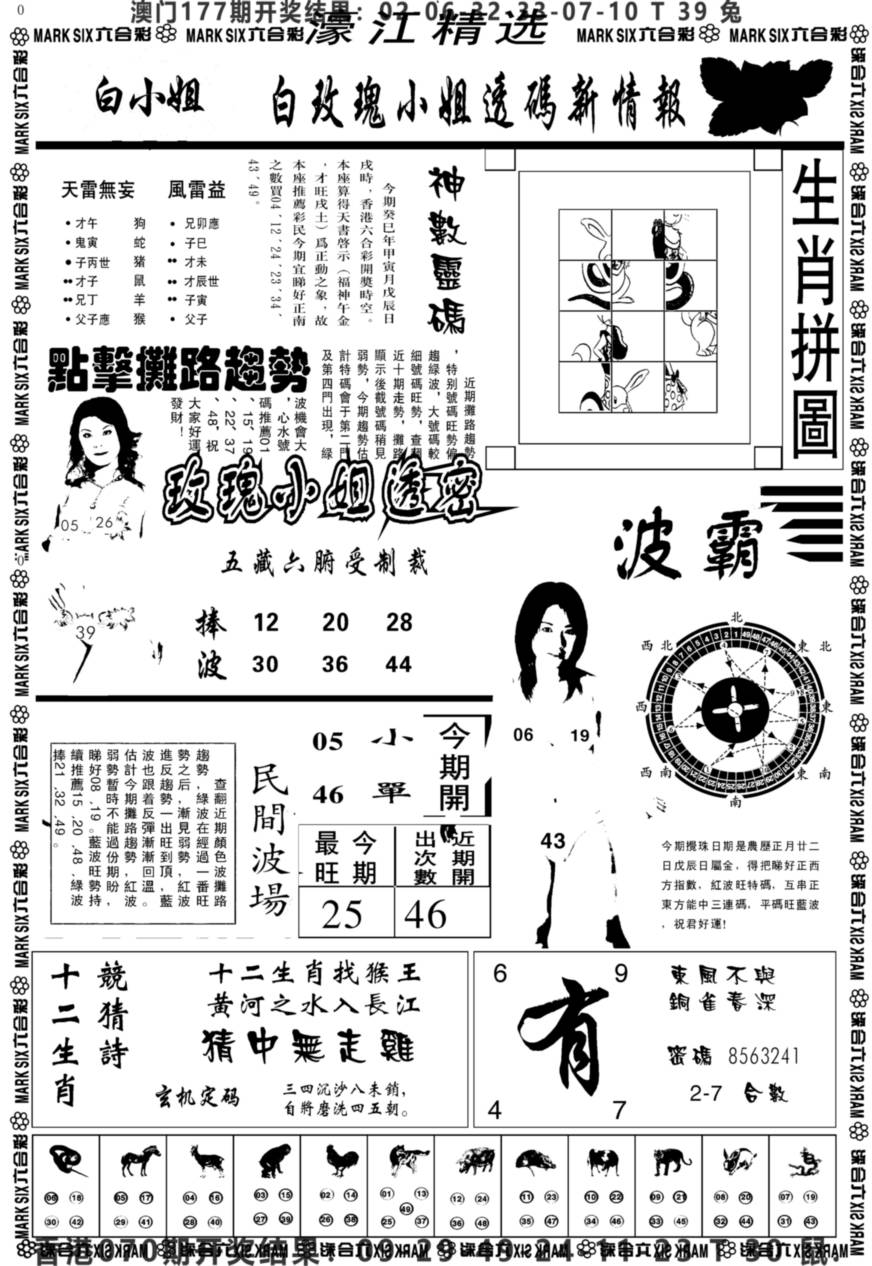 澳门177期开奖结果: 02-06-32-33-07-10 T 39 兔
0
MARK SIX六合彩 MARK SIX六合彩 濠江精选 MARK SIX六合彩 MARK SIX六合彩
白小姐 白玫瑰小姐透碼新情報
天雷無妄 風雷益
•才午 狗 •兄卯應
•鬼寅 蛇 •子巳
•子丙世 豬 ••才未
••才子 鼠 ••才辰世
••兄丁 羊 ••子寅
•父子應 猴 •父子
神數靈碼
今期癸巳年甲寅月戊辰日
戌時，香港六合彩開獎時空。
本座算得天書啓示（福神午金
，才旺戌土）爲正動之象，故
本座推薦彩民今期宜睇好正南
之數買04，12，24，23，34，
43，49。
生肖拼圖
點擊攤路趨勢
近期攤路趨勢
，特別號碼旺勢偏
趨綠波，大號碼較
細號碼旺勢，查翻
近十期走勢，攤路
顯示後截號碼稍見
弱勢，今期趨勢估
計特碼會于第二門
及第四門出現，綠
波機會大
，心水號
碼推薦01
，15，19
，22，37
，48，祝
大家好運
發財！
05 26
39
玫瑰小姐透密
五藏六腑受制裁
捧 12 20 28
波 30 36 44
波霸
06 19
43
北
西北 東北
西 東
西南 東南
南
今期攪珠日期是農歷正月廿二
日戊辰日屬金，得把睇好正西
方指數，紅波旺特碼，互串正
東方能中三連碼，平碼旺藍波
，祝君好運!
查翻近期顏色攤路
趨勢，綠波在經過一番旺
勢之后，漸見弱勢，紅波
進反趨勢一出旺到頂，藍
波也跟着反彈漸漸回温。
估計今期攤路趨勢紅波
弱勢暫時不能過份期盼，
睇好08，19。藍波旺勢持
續推薦15，20，48，綠波
捧21，32，49。
民間波場
05 小
46 單
今期開
最旺 今期
出次數 近期開
25 46
十二生肖
競猜詩
十二生肖找猴王
黃河之水入長江
猜中無走雞
玄机定码
三四沉沙八未銷，
自將磨洗四五朝。
6 9
有
4 7
東風不與
銅雀春深
密碼 8563241
2-7 合數
06 18 05 17 04 16 03 15 02 14 01 13 12 24 11 23 10 22 09 21 08 20 07 19
49
30 42 29 41 28 40 27 39 26 38 25 37 36 48 35 47 34 46 33 45 32 44 31 43
香港070期开奖结果: 09-29-49-24-11-23 T 30 鼠.